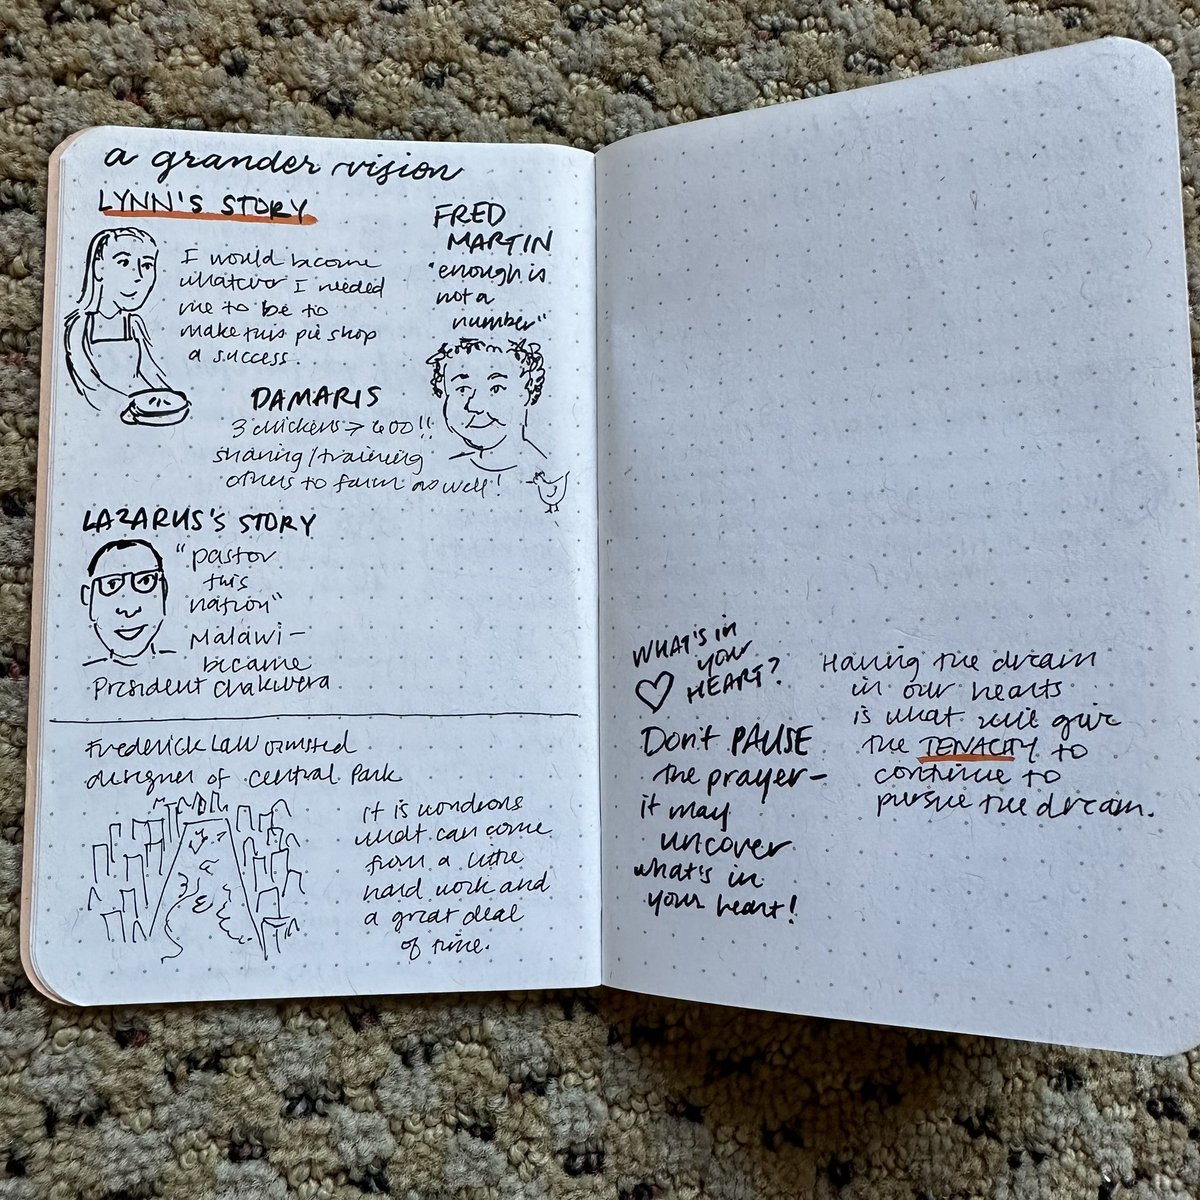 a grander vision
LYNN'S STORY
I would become
whatever I needed
me to be to
make this pie shop
a success.
FRED
MARTIN
"enough is
not a
number"
DAMARIS
3 chickens → 600!!
sharing/training
others to farm as well!
LAZARUS'S STORY
"pastor
this
nation"
Malawi –
became
President Chakwera
Frederick Law Olmsted
designer of Central Park
it is wondrous
what can come
from a little
hard work and
a great deal
of time.
WHAT'S in
your
HEART?
Don't PAUSE
the prayer –
it may
uncover
what's in
your heart!
Having the dream
in our hearts
is what will give
the TENACITY to
continue to
pursue the dream.